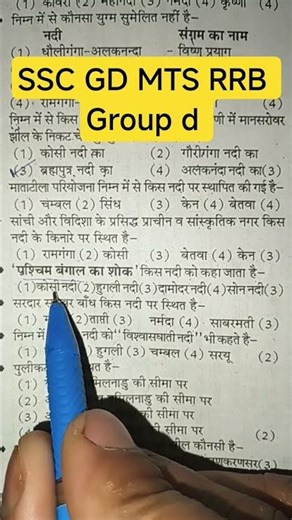 (1) कावेरी (2) महानदी (3) नर्मदा (4) कृष्णा (4)
निम्न में से कौनसा युग्म सुमेलित नहीं है-
नदी संगम का नाम
(1) धौलीगंगा-अलकनन्दा - विष्णु प्रयाग
SSC GD MTS RRB
Group d
(4) रामगंगा- (4)
निम्न में से किस णी में मानसरोवर
झील के निकट
(1) कोसी नदी का (2) गौरीगंगा नदी का
(3) ब्रह्मपुत्र नदी का (4) अलकनंदा नदी का(3)
माताटीला परियोजना निम्न में से किस नदी पर स्थापित की गई है-
(1) चम्बल (2) सिंध (3) केन (4) बेतवा (4)
सांची और विदिशा के प्रसिद्ध प्राचीन व सांस्कृतिक नगर किस
नदी के किनारे पर स्थित है-
(1) रामगंगा (2) कोसी (3) बेतवा (4) केन (3)
'पश्चिम बंगाल का शोक' किस नदी को कहा जाता है-
(1)कोसी नदी(2)हुगली नदी(3)दामोदर नदी(4)सोन नदी(3)
सरदार बाँध किस नदी पर स्थित है-
(1) (2)ताप्ती (3) नर्मदा (4) साबरमती (3)
निम्न में नदी को "विश्वासघाती नदी" भी कहते है-
(1) हुगली (3) चम्बल (4) सरयू (2)
पुलीकट स्थित है-
(1) मिलनाडु की सीमा पर
(2) मिलनाडु की सीमा पर
(3) सीमा पर
(4) पर (2)
झील कौनसी है-
(1) (3)